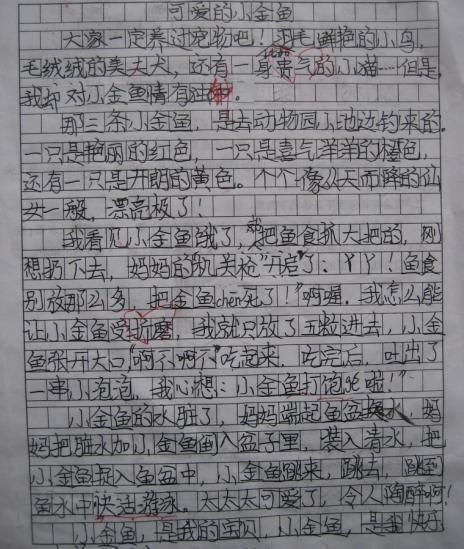 可爱的小金鱼
大家一定养过宠物吧！羽毛鲜艳的小鸟，
毛绒绒的美犬犬，还有一身贵气的小猫……但是，
我却对小金鱼情有独钟。
那三条小金鱼，是去动物园小池边钓来的。
一只是艳丽的红色，一只是喜气洋洋的橙色，
还有一只是开朗的黄色。个个像从天而降的仙
女一般，漂亮极了！
我看见小金鱼饿了，把鱼食抓大把的，刚
想扔下去，妈妈的"机关枪"开启了：丫丫！鱼食
别放那么多，把金鱼chen死了！"啊喔。我怎么能
让小金鱼受折磨，我就只放了五粒进去，小金
鱼张开大口"啊不啊不"吃起来，吃完后，吐出了
一串小泡泡，我心想：小金鱼打饱啦！"
小金鱼的水脏了，妈妈端起鱼盆换水，妈
妈把脏水加小金鱼倒入盆子里，装入清水，把
小金鱼捉入鱼盆中，小金鱼跳来，跳去，跳到
鱼水中快活游泳。太太太可爱了，令人陶醉啊！
小金鱼，是我的宝贝，小金鱼，是金快乐